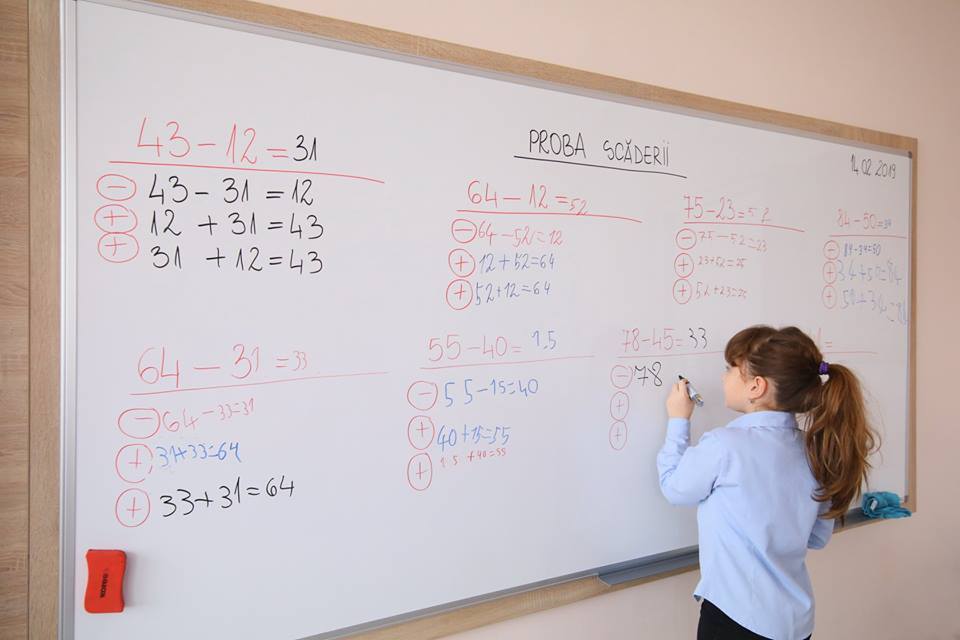 PROBA SCĂDERII
14 02 2019
43 - 12 = 31
- 43 - 31 = 12
+ 12 + 31 = 43
+ 31 + 12 = 43
64 - 12 = 52
- 64 - 52 = 12
+ 12 + 52 = 64
+ 52 + 12 = 64
75 - 23 = 52
- 75 - 52 = 23
+ 23 + 52 = 75
+ 52 + 23 = 75
84 - 50 = 34
- 84 - 34 = 50
+ 34 + 50 = 84
+ 50 + 34 = 84
64 - 31 = 33
- 64 - 33 = 31
+ 31 + 33 = 64
+ 33 + 31 = 64
55 - 40 = 15
- 55 - 15 = 40
+ 40 + 15 = 55
+ 15 + 40 = 55
78 - 45 = 33
- 78
+
+
=